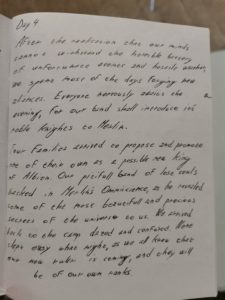 Day 4
After the realization that our minds
cannot withstand the horrible history
of unfortunate events and hostile weather,
we spent most of the days forging new
alliances. Everyone nervously awaits the
evening, for our band shall introduce its
noble Knights to Merlin.
Four Families arrived to propose and promote
one of their own as a possible new King
of Albion. Our pitifull band of lose ends
basked in Merlin's Omniscience, as he revealed
some of the most beautifull and precious
secrets of the universe to us. We arrived
back to the camp dazed and confused. None
slept easy that night, as we all knew that
our new ruler is coming, and they will
be of our own ranks.